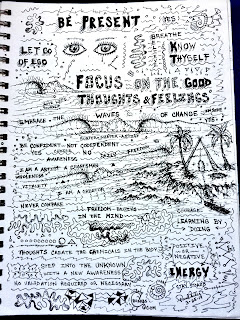 BE PRESENT
YES
LET GO
OF EGO
BREATHE
KNOW
THYSELF
FOCUS ON THE GOOD
THOUGHTS & FEELINGS
EMBRACE THE WAVES OF CHANGE
BE CONFIDENT NOT CODEPENDENT
YES NO
AWARENESS
I AM A ARTIST A CRAFTSMAN
VITALITY
I AM A
NEVER COMPARE
FREEDOM BEGINS
IN THE MIND
LEARNING BY
DOING
THOUGHTS CREATE THE CHEMICALS IN THE BODY
POSITIVE
NEGATIVE
STEP INTO THE UNKNOWN
WITH A NEW AWARENESS
ENERGY
NO VALIDATION REQUIRED OR NECESSARY